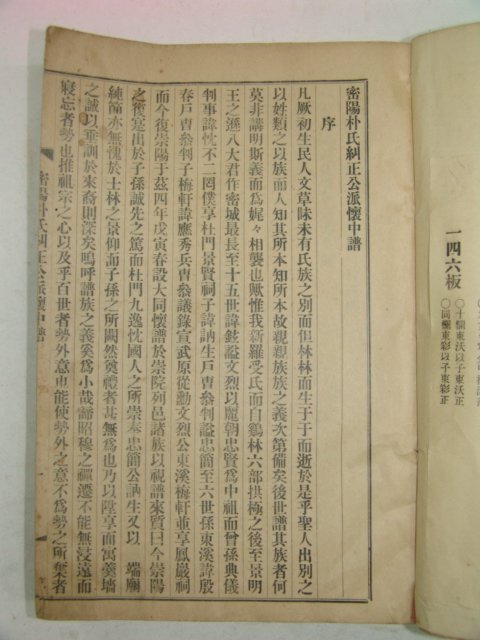 一四六板
○十欄東沃以子東沃正
○同欄東彩以子東彩正
密陽朴氏糾正公派懷中譜
序
凡厥初生民人文草昧未有氏族之別而但林林而生于于而逝於是乎聖人出別之
以姓類之以族而人知其所本知所本故親親族族之義次第備矣後世譜其族者何
莫非講明斯義而為娓々相襲也歟惟我新羅受氏而自鷄林六部拱極之後至景明
王之遜八大君作密城最長至十五世諱鉉謚文烈以麗朝忠賢為中祖而曾孫典儀
判事諱忱不二罔僕享杜門景賢祠子諱訥生戶曺參判謚忠簡至六世孫東溪諱殷
春戶曺參判子梅軒諱應秀兵曺參議錄宣武原從勳文烈公東溪梅軒並享鳳巖祠
而今復崇陽于茲四年戊寅春設大同懷譜於崇院列邑諸族以視譜來質曰今崇陽
之復寔出於子孫誠先之篤而杜門九逸忱國人之所崇奉忠簡公訥生又以 端廟
練節亦無愧於士林之景仰而子孫之所闕然奠禮者甚無為也乃以陞享而寓羹墻
之誠以垂訓於來裔則深矣嗚呼譜族之義奚為小哉嘗昭穆之禪遷不能無浸遠而
寢忘者勢也推祖宗之心以及乎百世者勢外意也能使勢外之意不為勢之所棄者
密陽朴氏糾正公派懷中譜